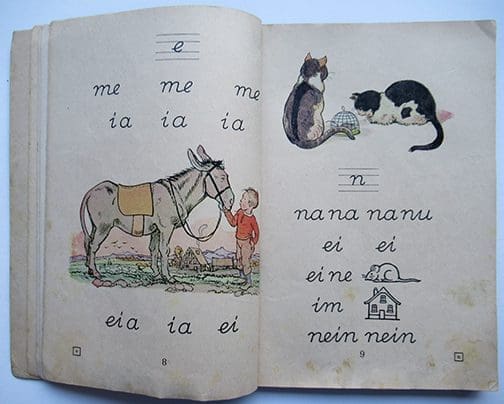 e
me me me
ia ia ia
eia ia ei
8
n
na na na nu
ei ei
eine
im
nein nein
9